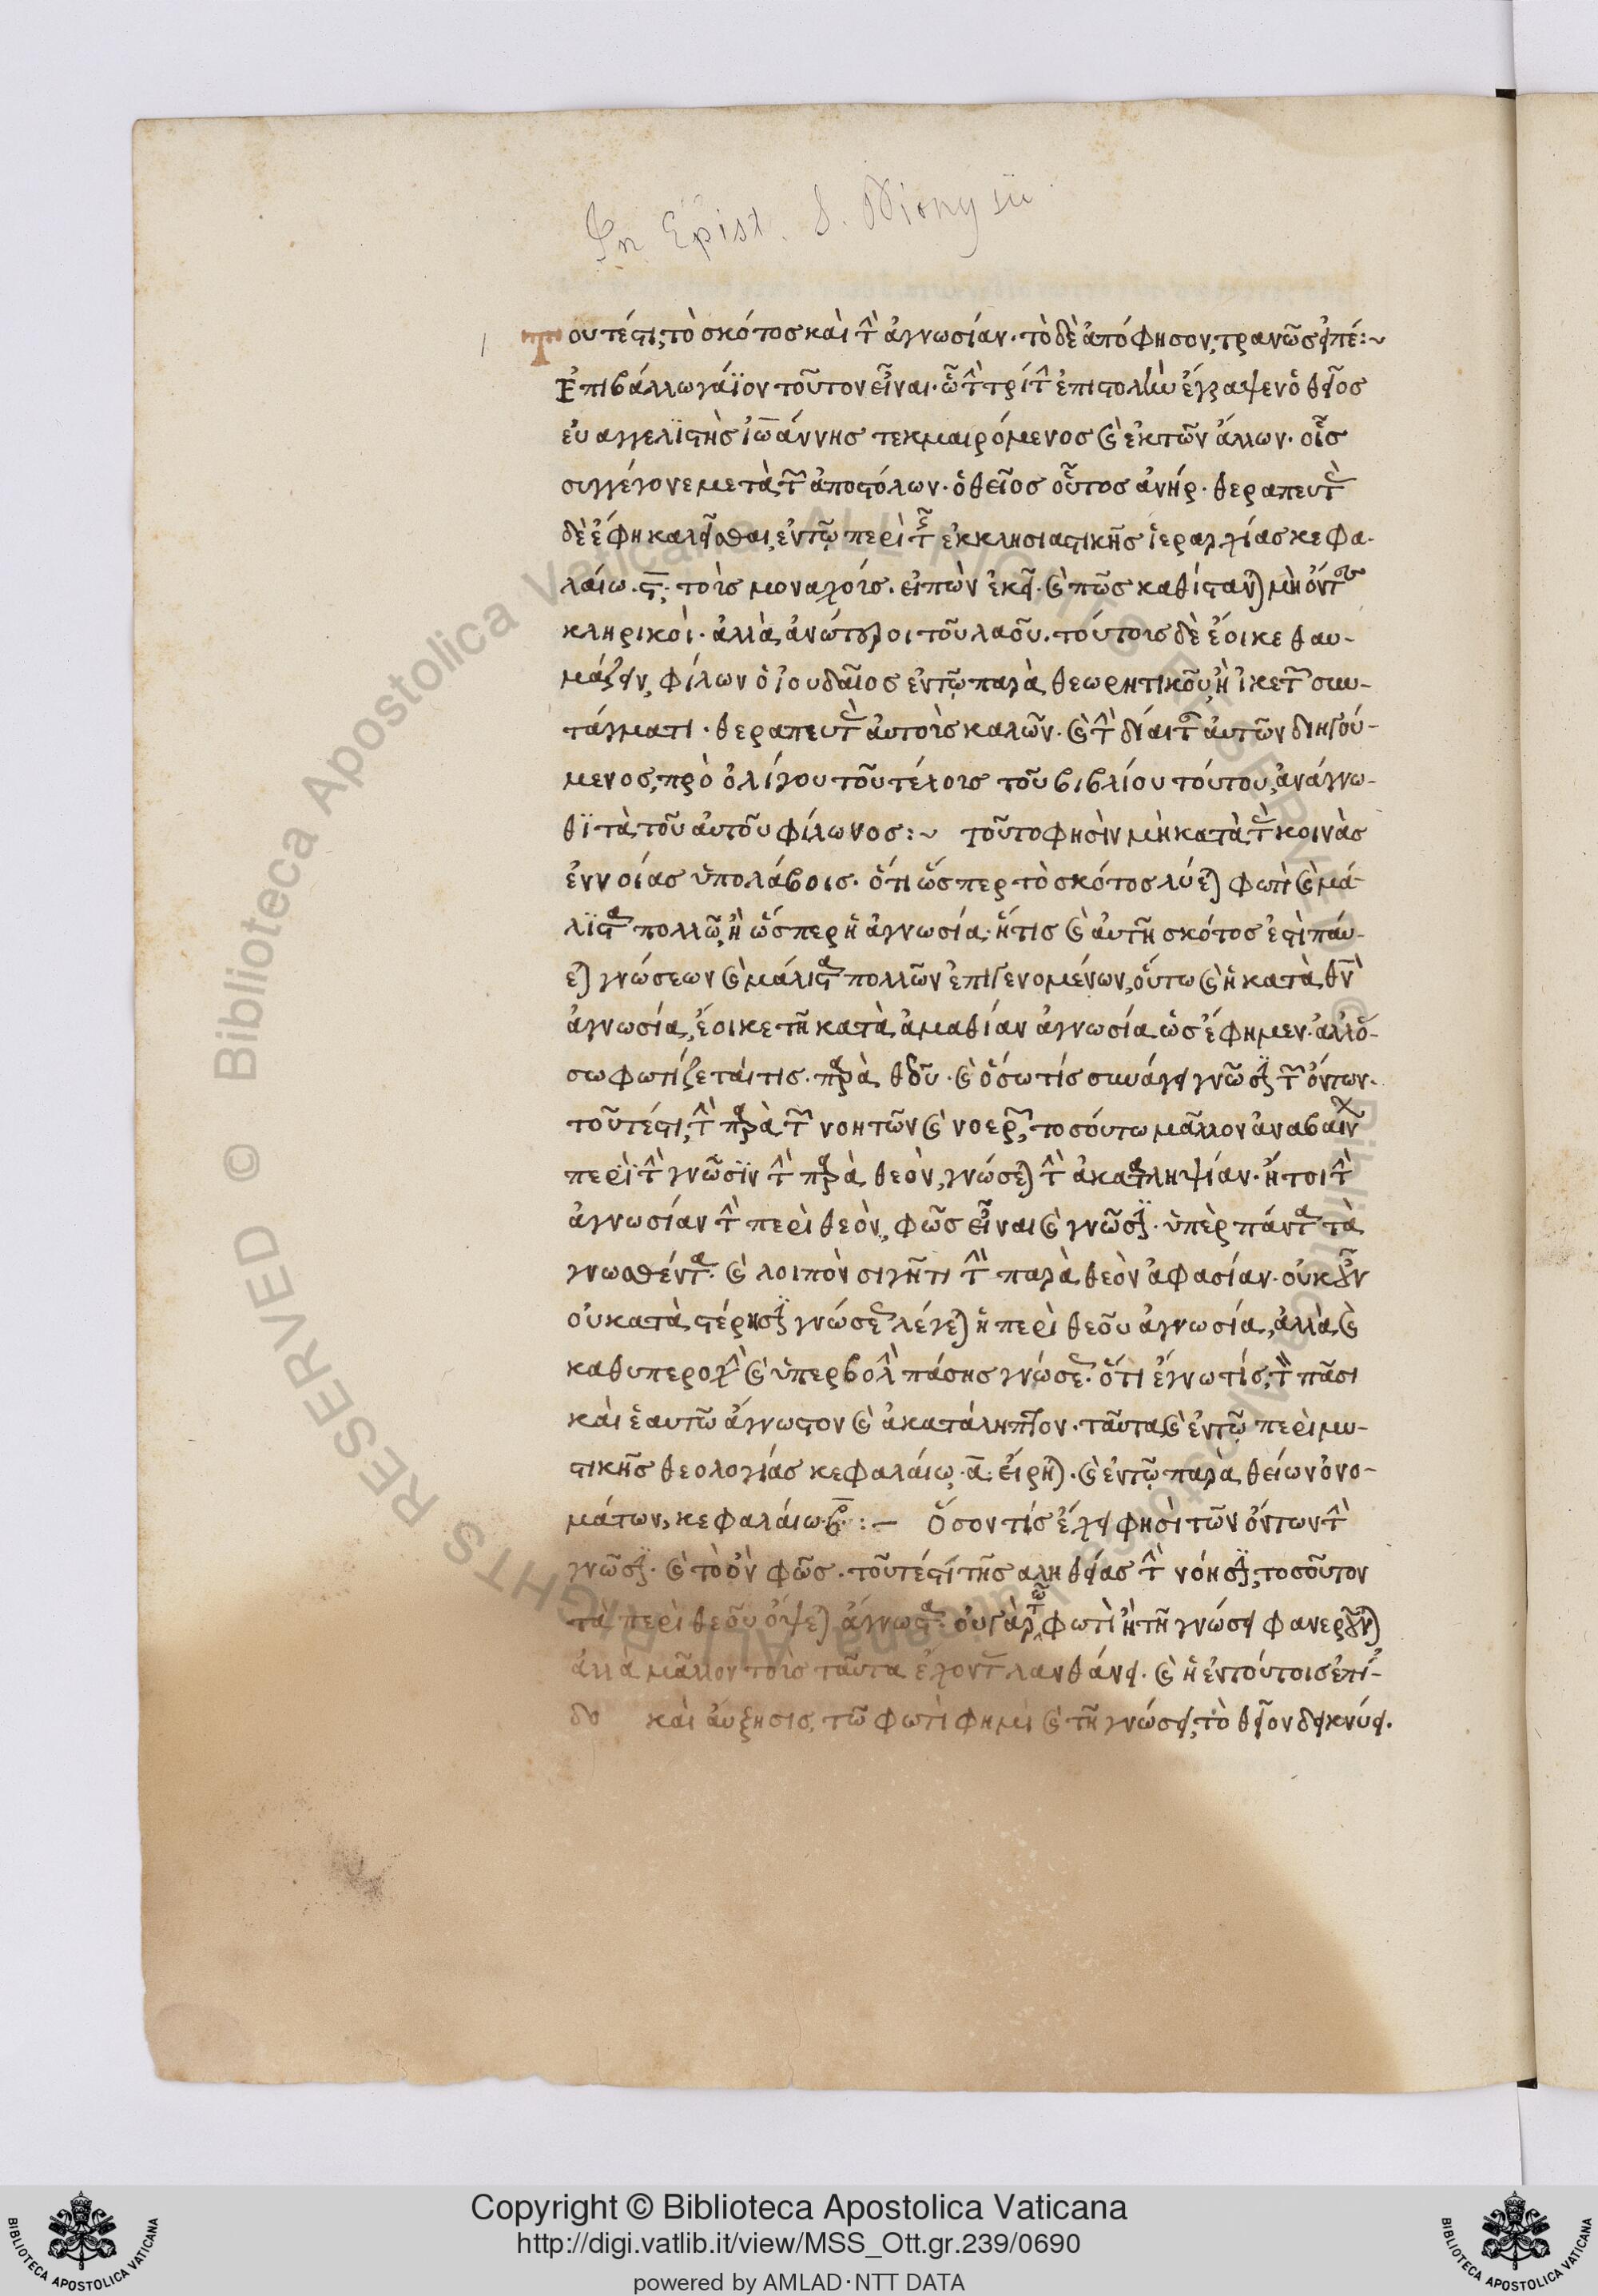 In Epist. S. Dionysii
1
Τουτέστι, τὸ σκότος καὶ τὴν ἀγνωσίαν· τὸ δὲ ἀπόφησον, τρανῶς εἰπέ:~
Ἐπιβάλλω γάϊον τοῦτον εἶναι· ᾧ τὴν τρίτην ἐπιστολὴν ἔγραψεν ὁ θεῖος
εὐαγγελϊστὴς ἰωάννης τεκμαιρόμενος καὶ ἐκ τῶν ἄλλων· οἷς
συγγέγονε μετὰ τῶν ἀποστόλων· ὁ θεῖος οὗτος ἀνήρ· θεραπευτὰς
δὲ ἔφη καλεῖσθαι, ἐν τῷ περὶ τῆς ἐκκλησιαστικῆς ἱεραρχίας κεφα-
λαίω ϛ· τοὺς μοναχούς· εἰπὼν ἐκεῖ· καὶ πῶς καθίστανται μὴ ὄντες
κληρικοὶ· ἀλλὰ ἀνώτεροι τοῦ λαοῦ· τούτους δὲ ἔοικε θαυ-
μάζειν, φίλων ὁ ἰουδαῖος ἐν τῷ παρὰ θεωρητικοῦ, ἢ ἱκετῶν συν-
τάγματι· θεραπευτὰς αὐτοὺς καλῶν· καὶ τὴν δίαιταν αὐτῶν διηγού-
μενος, πρὸ ὀλίγου τοῦ τέλους τοῦ βιβλίου τούτου, ἀνάγνω-
θϊ τὰ τοῦ αὐτοῦ φίλωνος:~ τοῦτο φησὶν μὴ κατὰ τὰς κοινὰς
ἐννοίας ὑπολάβοις· ὅτι ὥσπερ τὸ σκότος λύεται φωτὶ καὶ μά-
λϊστα πολλῷ, ἢ ὥσπερ ἡ ἀγνωσία· ἥτις καὶ αὐτὴ σκότος ἐστὶ παύ-
εται γνώσεων καὶ μάλιστα πολλῶν ἐπιγενομένων, οὕτω καὶ ἡ κατὰ θν
ἀγνωσία, ἔοικε τῇ κατὰ ἀμαθίαν ἀγνωσία ὡς ἔφημεν· ἀλλ' ὅ-
σω φωτίζεταί τις· παρὰ θεοῦ· καὶ ὅσω τίς συνάγει γνῶσιν τῶν ὄντων·
τοῦτέστι, τὴν παρὰ τῶν νοητῶν καὶ νοερῶν, τοσούτω μᾶλλον ἀναβαίνων
περὶ τὴν γνῶσϊν τὴν παρὰ θεὸν, γνώσεται τὴν ἀκαταληψίαν· ἤτοι τὴν
ἀγνωσίαν τὴν περὶ θεὸν, φῶς εἶναι καὶ γνῶσιν· ὑπὲρ πάντα τὰ
γνωσθέντα· καὶ λοιπὸν σιγῇ τι τὴν παρὰ θεὸν ἀφασίαν· οὐκοῦν
οὐ κατὰ στέρησιν γνώσεως λέγεται ἡ περὶ θεοῦ ἀγνωσία, ἀλλὰ καὶ
καθ υπεροχὴν καὶ ὑπερβολὴν πάσης γνώσεως· ὅτι ἔγνω τίς, τὴν πᾶσι
καὶ ἑαυτῷ ἄγνωστον καὶ ἀκατάληπτον· ταῦτα καὶ ἐν τῷ περὶ μυ-
στικῆς θεολογίας κεφαλαίω, α· εἴρηται· καὶ ἐν τῷ παρὰ θείων ὀνο-
μάτων, κεφαλαίω β:— Ὅσον τίς ἔχει φησὶ τῶν ὄντων τὴν
γνῶσιν· καὶ τὸ ὂν φῶς· τοῦτέστι τῆς αληθείας τὴν νόησιν, τοσοῦτον
τὰ περὶ θεοῦ ὄψεται ἄγνωστα· οὐ γὰρ τῷ φωτὶ ἢ τῇ γνώσει φανεροῦνται
ἀλλὰ μᾶλλον τοὺς ταῦτα ἔχοντας λανθάνει· καὶ ἡ ἐν τούτοις ἐπί-
δο καὶ αὔξησις, τῷ φωτὶ φημὶ καὶ τῇ γνώσει, τὸ θεῖον δεικνύει.
Copyright © Biblioteca Apostolica Vaticana
http://digi.vatlib.it/view/MSS_Ott.gr.239/0690
powered by AMLAD·NTT DATA